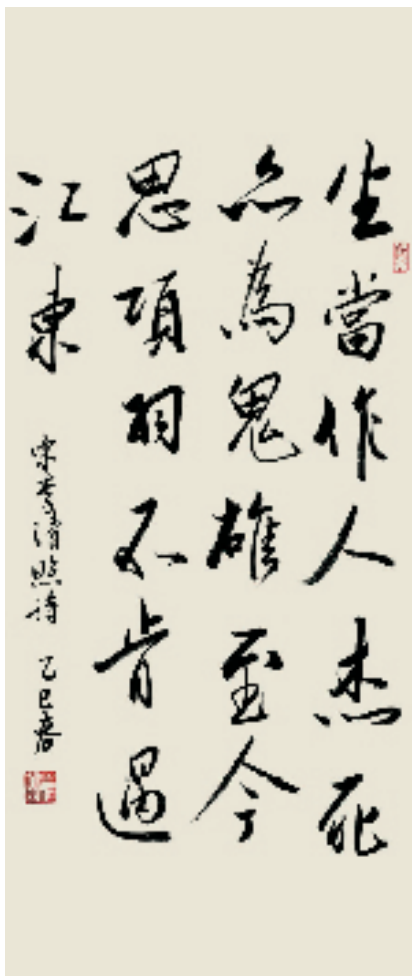 生當作人杰死
亦為鬼雄至今
思項羽不肯過
江東
宋李清照詩 乙巳春